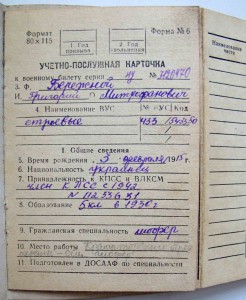 Формат
80×115
1 Год
призыва
2 Год
увольнения
Форма № 6
УЧЕТНО-ПОСЛУЖНАЯ КАРТОЧКА
к военному билету серии НУ №
3. Ф. Бережной
И. Григорий О. Митрофанович
4. Наименование ВУС № ВУС Код
строевые 133
I. Общие сведения
5. Время рождения 5 февраля 1915 г.
6. Национальность украинец
7. Принадлежность к КПСС и ВЛКСМ
член КПСС с 1942
N 11233631
8. Образование 5 кл в 1930 г
9. Гражданская специальность шофер
10. Место работы
11. Подготовлен в ДОСААФ по специальности
Наименование
части